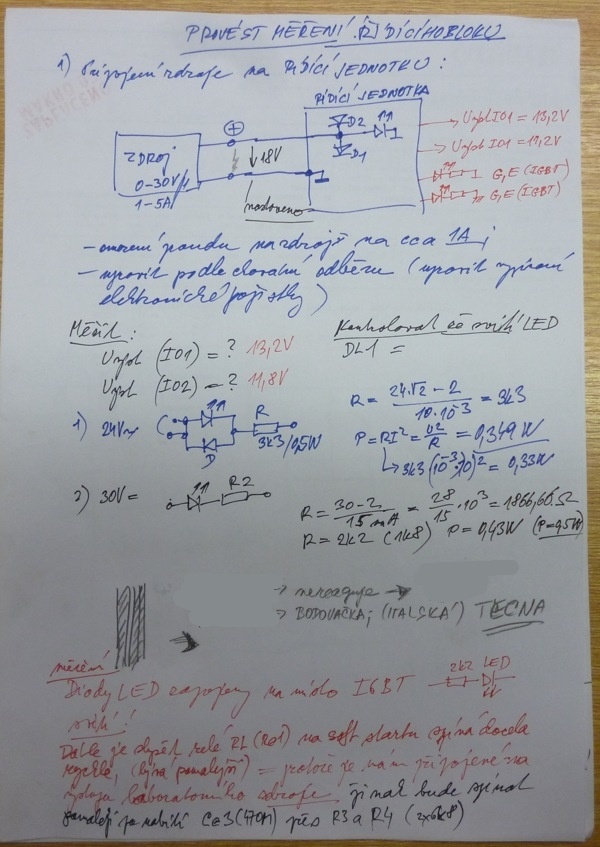 PROVÉST MĚŘENÍ ŘÍDÍCÍHO BLOKU
1) Připojení zdroje na ŘÍDÍCÍ JEDNOTKU:
ŘÍDÍCÍ JEDNOTKA
ZDROJ
0-30V/
1-5A
+
18V
D2
D1
1
nastaveno
Uvýst IO1 = 13,2V
Uvýst IO1 = 11,2V
G,E (IGBT)
G,E (IGBT)
- omezení proudu na zdroji na cca 1A;
- upravit podle chování odběru (upravit vypínání
elektronické pojistky)
Měřit:
Uvýst (IO1) = ? 13,2V
Uvýst (IO2) = ? 11,8V
Kontrolovat že svítí LED
DL1 =
1) 24V~
D
R
3k3/0,5W
R = 24·√2 - 2 / 10·10⁻³ = 3k3
P = RI² = U²/R = 0,349W
3k3(10⁻³·10)² = 0,33W
2) 30V=
R2
R = 30-2 / 15mA = 28/15 · 10³ = 1866,66Ω
R = 2k2 (1k8) P = 0,43W (P=0,5W)
→ nereaguje →
→ BODOVAČKA; (ITALSKÁ) TECNA
měření
Diody LED zapojeny na místo IGBT
2k2 LED
svítí!
Dále je slyšet relé RL (Re1) na soft startu spíná docela
rychle, (bývá pomalejší) = protože je nám připojené na
výstupu laboratorního zdroje. Jinak bude spínat
pomaleji po nabití Ce3 (470M) přes R3 a R4 (2x6k8)